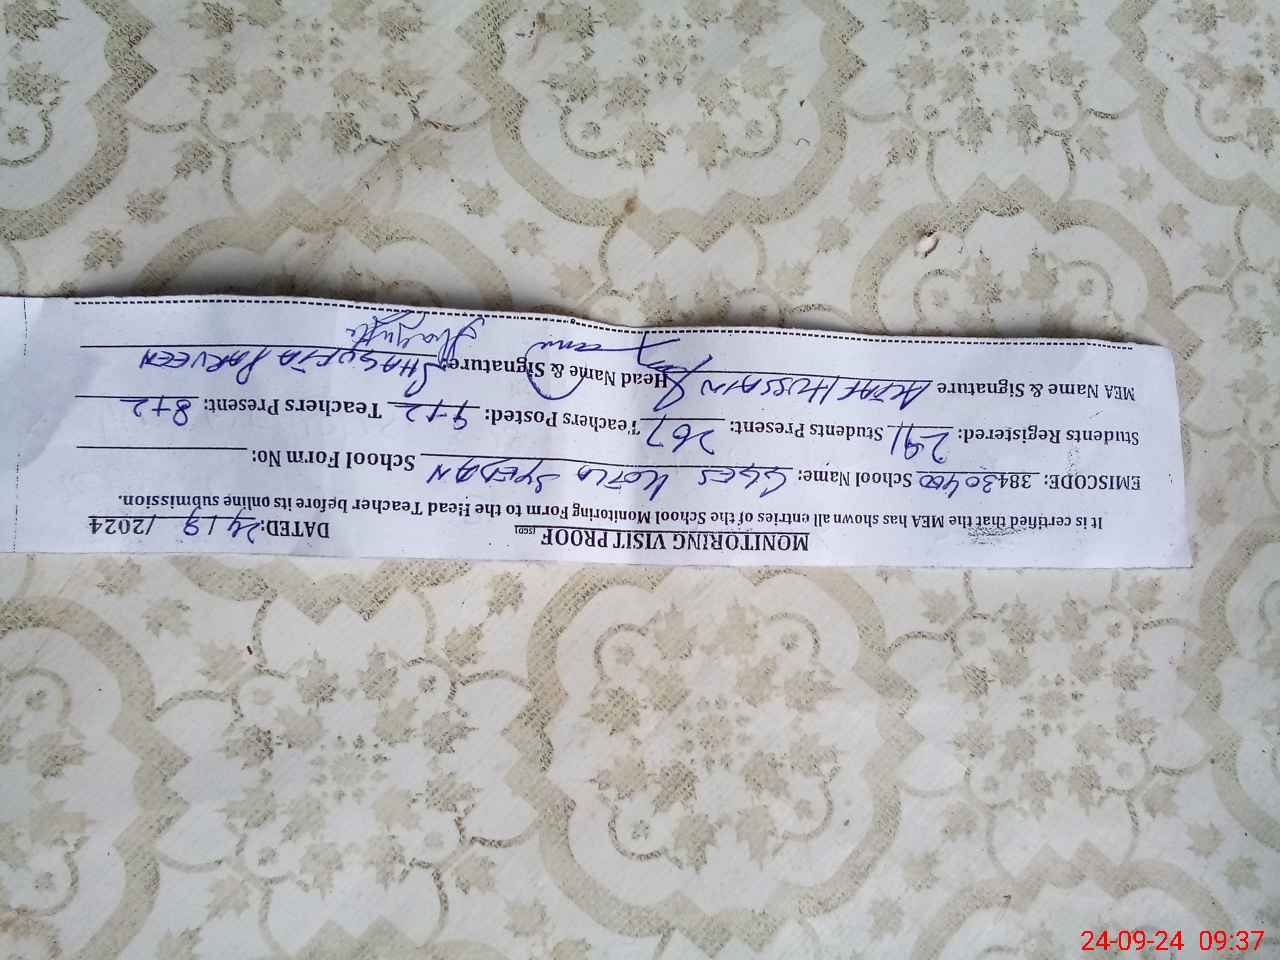 MONITORING VISIT PROOF [SGD] DATED: 24/9/2024
It is certified that the MEA has shown all entries of the School Monitoring Form to the Head Teacher before its online submission.
EMISCODE: 38430400 School Name: GGES KOTLA SYEDAN School Form No:
Students Registered: 291 Students Present: 267 Teachers Posted: 9+2 Teachers Present: 8+2
MEA Name & Signature ALTAF HUSSAIN Head Name & Signature: SHAGUFTA PARVEEN
Shagufta
24-09-24 09:37